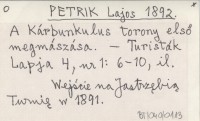 PETRIK Lajos 1892.
A Kárbunkulus torony első
megmászása. – Turisták
Lapja 4, nr 1: 6-10, il.
Wejście na Jastrzębią
Turnię w 1891.